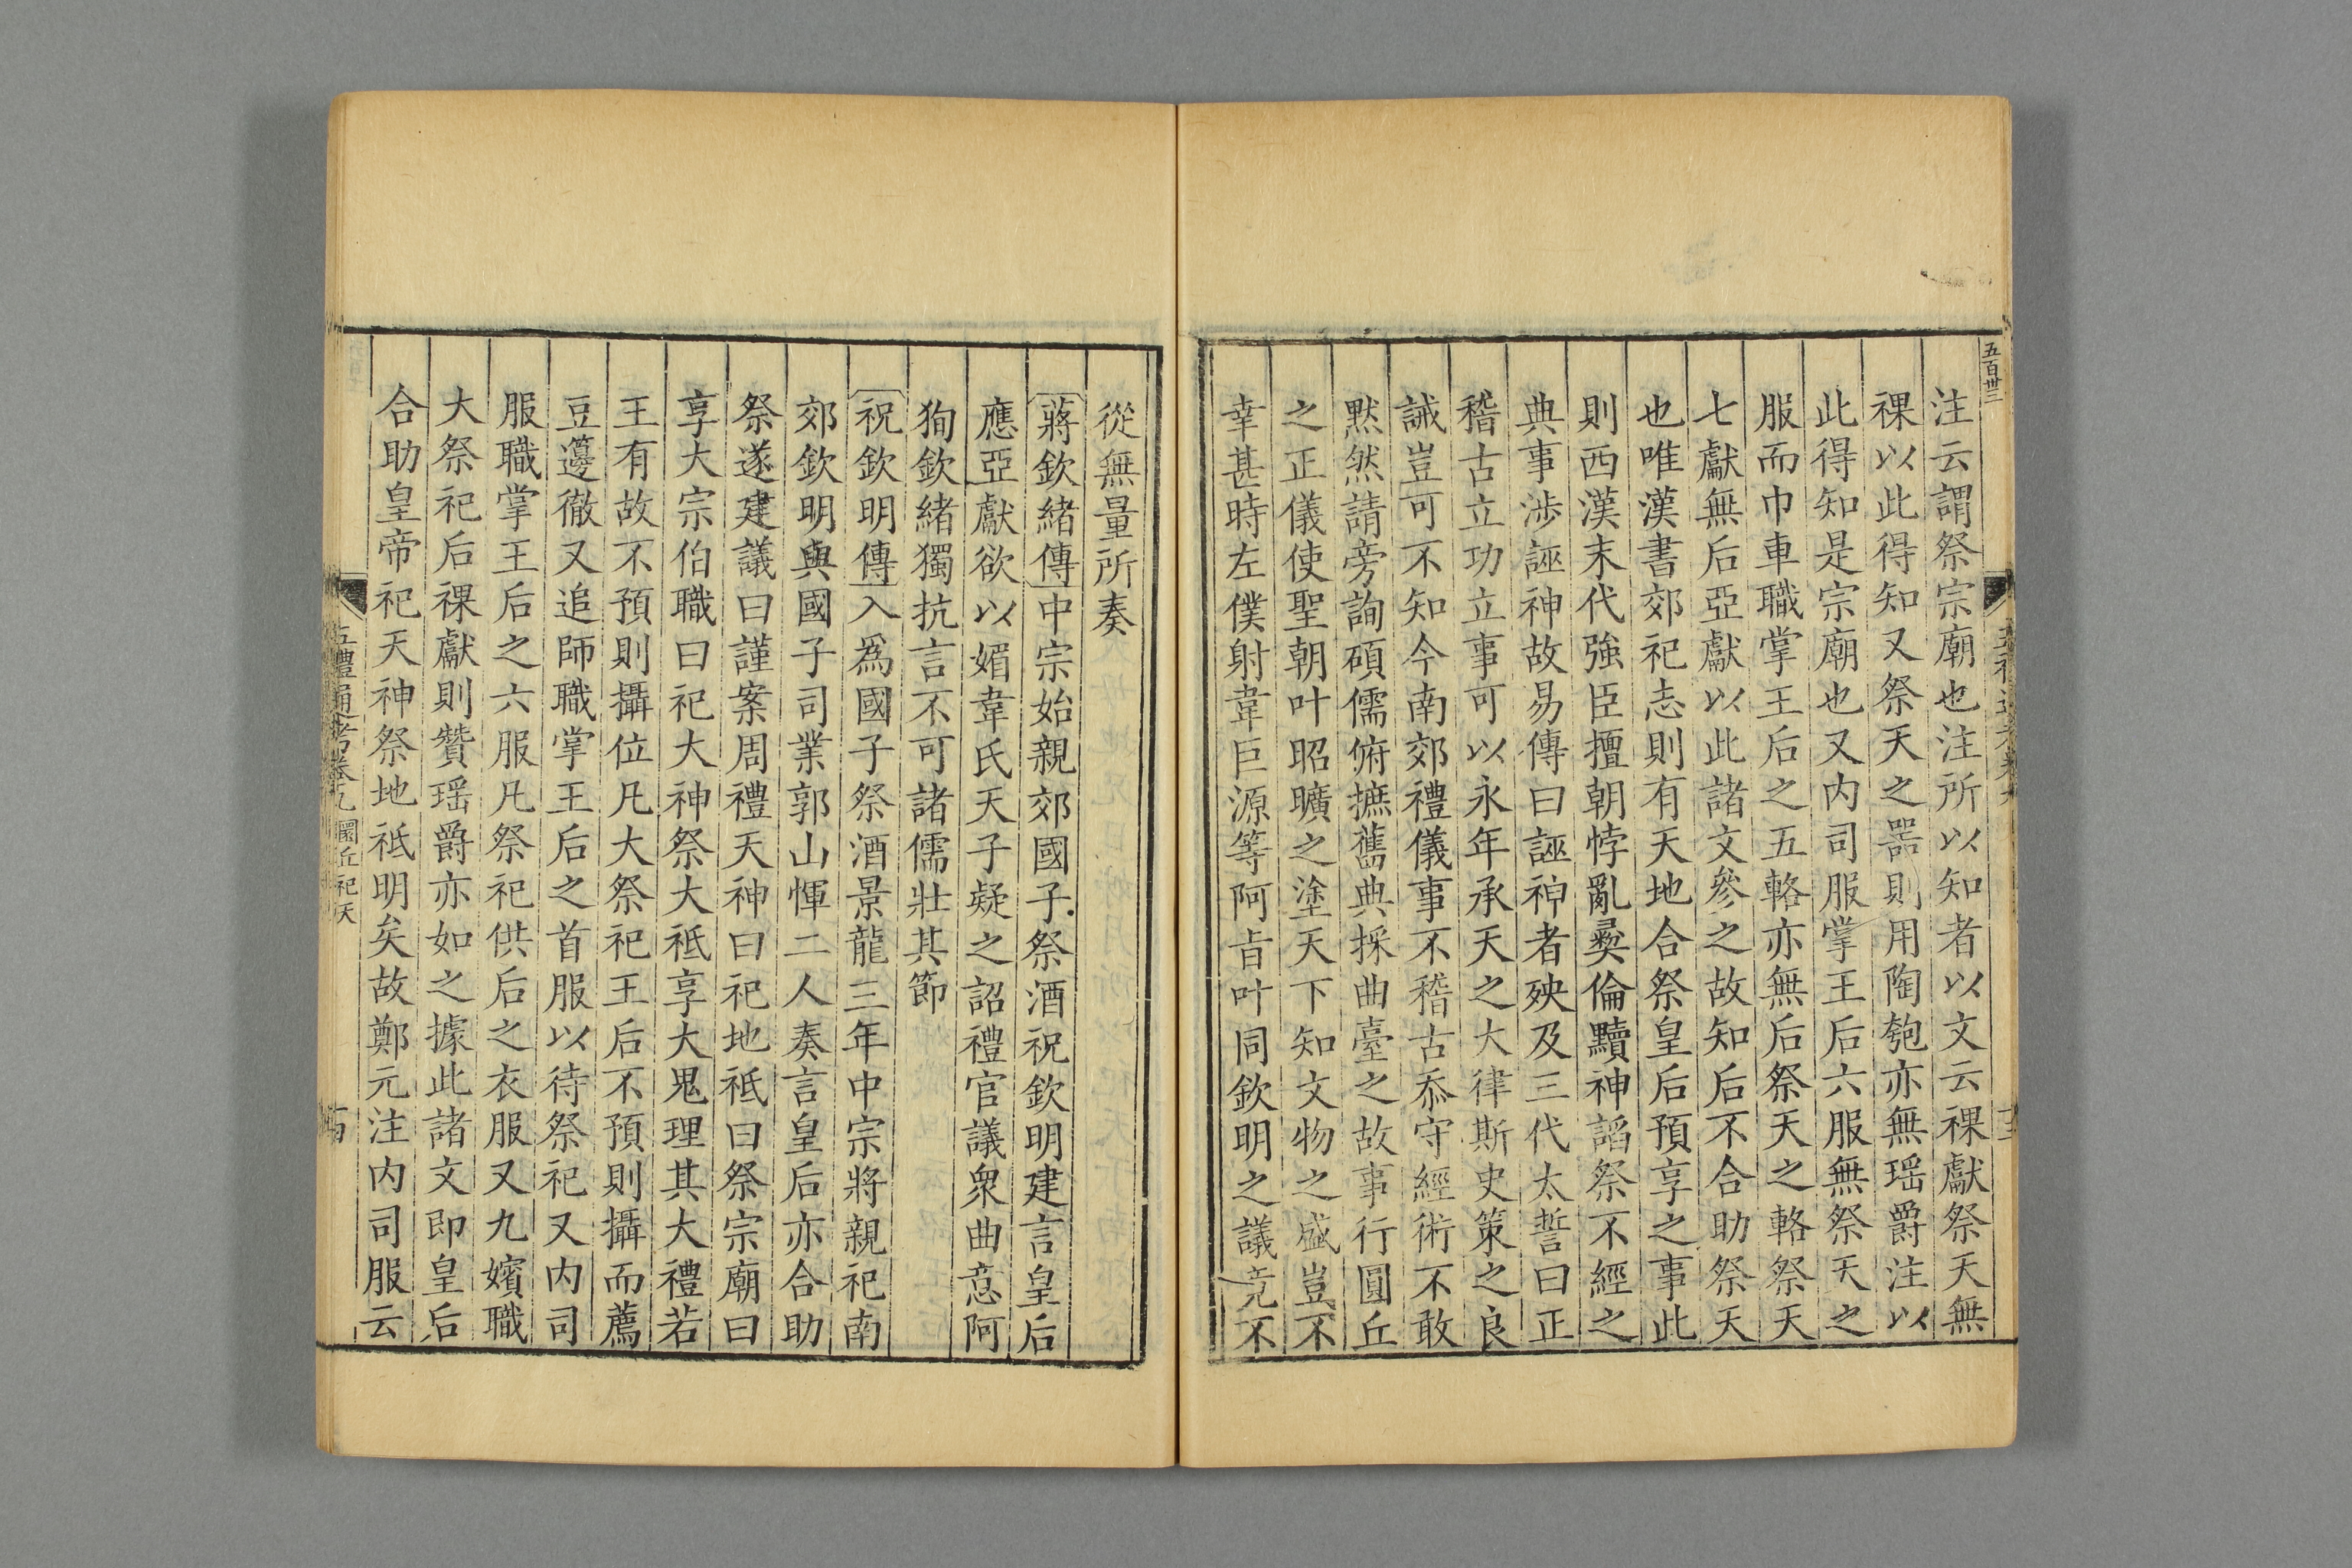 五百卅三
注云謂祭宗廟也注所以知者以文云祼獻祭天無
祼以此得知又祭天之器則用陶匏亦無瑶爵注以
此得知是宗廟也又内司服掌王后六服無祭天之
服而巾車職掌王后之五輅亦無后祭天之輅祭天
七獻無后亞獻以此諸文參之故知后不合助祭天
也唯漢書郊祀志則有天地合祭皇后預享之事此
則西漢末代強臣擅朝悖亂彞倫黷神諂祭不經之
典事涉誣神故易傳曰誣神者殃及三代太誓曰正
稽古立功立事可以永年承天之大律斯史策之良
誡豈可不知今南郊禮儀事不稽古忝守經術不敢
默然請旁詢碩儒俯摭舊典採曲臺之故事行圓丘
之正儀使聖朝叶昭曠之塗天下知文物之盛豈不
幸甚時左僕射韋巨源等阿㫖叶同欽明之議竟不
從無量所奏
蔣欽緒傳中宗始親郊國子祭酒祝欽明建言皇后
應亞獻欲以媚韋氏天子疑之詔禮官議衆曲意阿
狥欽緒獨抗言不可諸儒壯其節
祝欽明傳入爲國子祭酒景龍三年中宗將親祀南
郊欽明與國子司業郭山惲二人奏言皇后亦合助
祭遂建議曰謹案周禮天神曰祀地祇曰祭宗廟曰
享大宗伯職曰祀大神祭大祇享大鬼理其大禮若
王有故不預則攝位凡大祭祀王后不預則攝而薦
豆籩徹又追師職掌王后之首服以待祭祀又内司
服職掌王后之六服凡祭祀供后之衣服又九嬪職
大祭祀后祼獻則贊瑶爵亦如之據此諸文即皇后
合助皇帝祀天神祭地祇明矣故鄭元注内司服云
五禮通考卷九 圜丘祀天